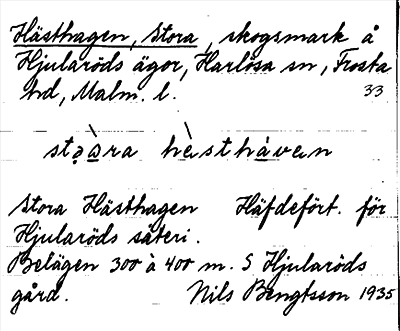 Hästhagen, Stora, skogsmark å
Hjularöds ägor, Harlösa sn, Frosta
hd, Malm. l. 33
hèsthàven
Stora Hästhagen Häfdefört. för
Hjularöds säteri.
Belägen 300 à 400 m. S Hjularöds
gård. Nils Bengtsson 1935